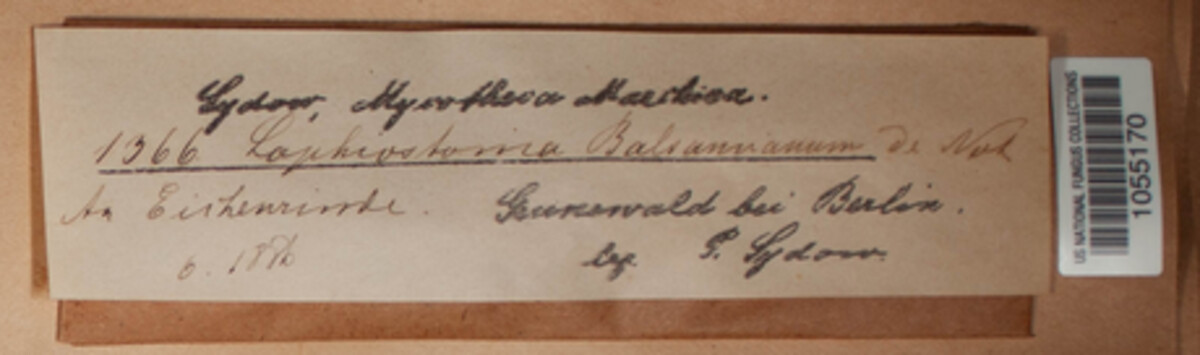 Sydow, Mycotheca Marchica.
1366 Lophiostoma Balsamianum de Not
An Eichenrinde.
Grunewald bei Berlin.
6.
leg. P. Sydow.
US NATIONAL FUNGUS COLLECTIONS
1055170